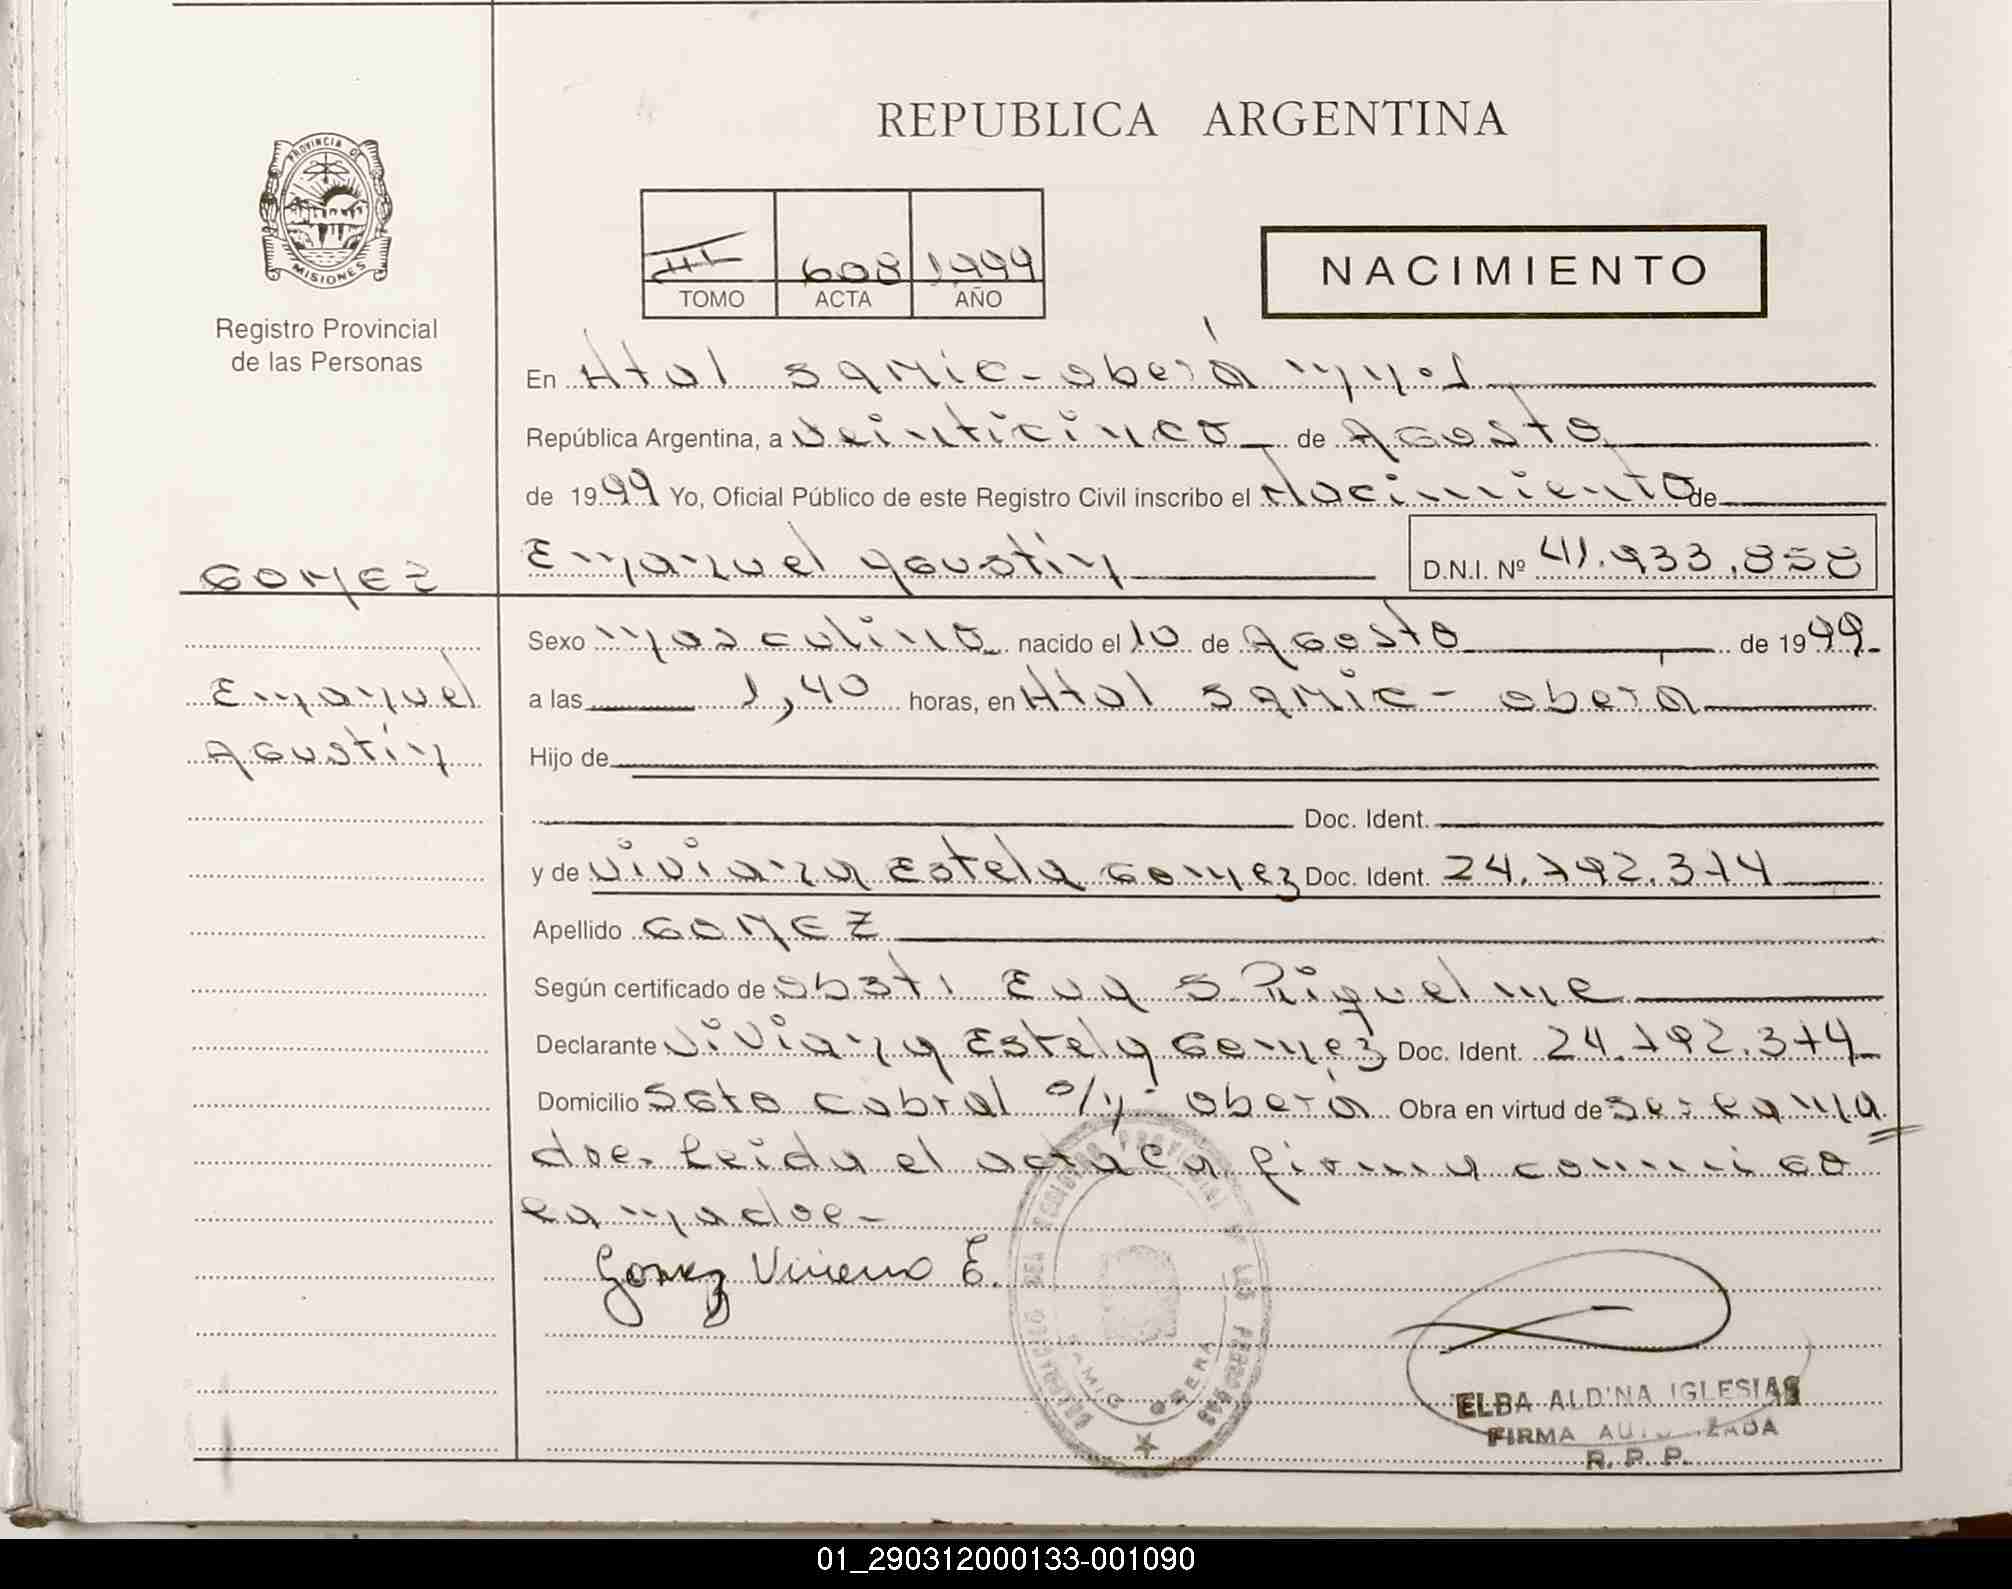 REPUBLICA ARGENTINA
PROVINCIA DE
MISIONES
Registro Provincial
de las Personas
III 608 1999
TOMO ACTA AÑO
NACIMIENTO
En Htal SAMIC - oberá
República Argentina, a veinticinco de Agosto
de 1999 Yo, Oficial Público de este Registro Civil inscribo el Nacimiento de
GOMEZ
Emanuel Agustin D.N.I. Nº 41.933.858
Sexo masculino nacido el 10 de Agosto de 1999
Emanuel
a las 1,40 horas, en Htal SAMIC - oberá
Agustin
Hijo de
Doc. Ident.
y de viviana Estela Gomez Doc. Ident. 24.792.374
Apellido GOMEZ
Según certificado de obst. Eva S Riquelme
Declarante viviana Estela Gomez Doc. Ident. 24.792.374
Domicilio Sgto cabral s/n oberá Obra en virtud de ser la ma
dre. Leida el acta la firma conmigo
la madre -
Gomez Viviana E.
DELEGACIÓN DEL REGISTRO PROVINCIAL DE LAS PERSONAS
SAMIC OBERA
ELBA ALDINA IGLESIAS
FIRMA AUTORIZADA
R. P. P.
01_290312000133-001090